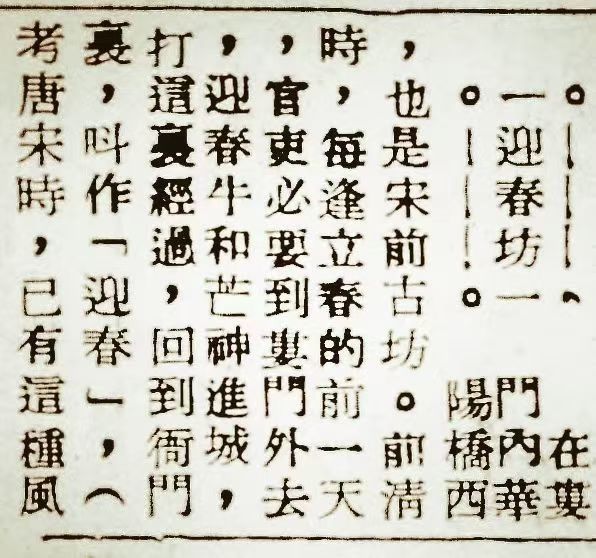 在婁
一迎春坊一　門內華
陽橋西
，也是宋前古坊。前清
時，每逢立春的前一天
，官吏必要到婁門外去
，迎春牛和芒神進城，
打這裏經過，回到衙門
裏，呌作「迎春」，（
考唐宋時，已有這種風